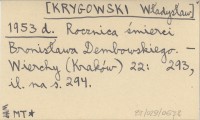 [KRYGOWSKI Władysław]
1953 d. Rocznica śmierci
Bronisława Dembowskiego. –
Wierchy (Kraków) 22: 293,
il. na s. 294.
MT*